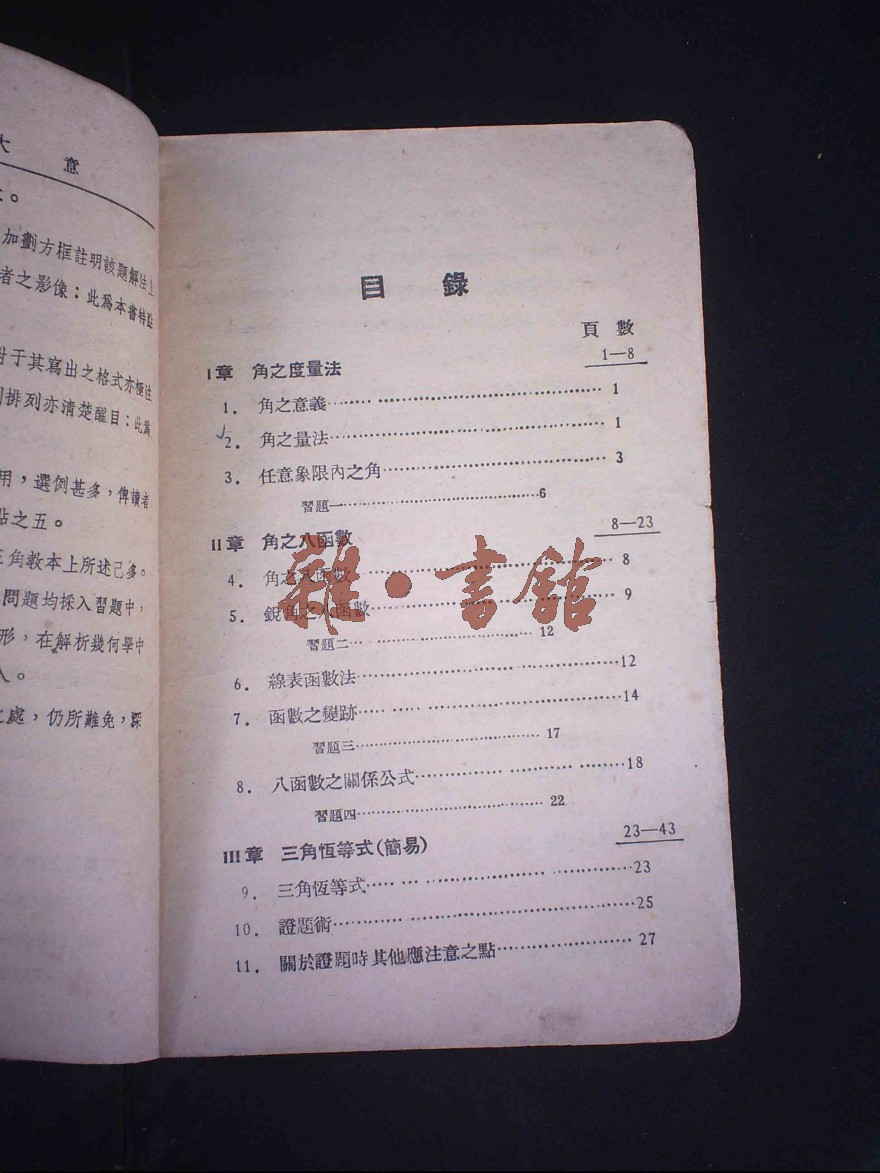 大意
。
加劃方框註明該題解法上
者之影像：此為本書特點
對于其寫出之格式亦極注
排列亦清楚醒目：此為
用，選例甚多，俾讀者
點之五。
三角教本上所述已多。
問題均採入習題中，
形，在解析幾何學中
人。
之處，仍所難免，深
目錄
頁數
I章 角之度量法 1—8
1. 角之意義 1
2. 角之量法 1
3. 任意象限內之角 3
習題一 6
II章 角之八函數 8—23
4. 角之八函數 8
5. 銳角之八函數 9
習題二 12
6. 線表函數法 12
7. 函數之變跡 14
習題三 17
8. 八函數之關係公式 18
習題四 22
III章 三角恆等式(簡易) 23—43
9. 三角恆等式 23
10. 證題術 25
11. 關於證題時其他應注意之點 27
雜·書館